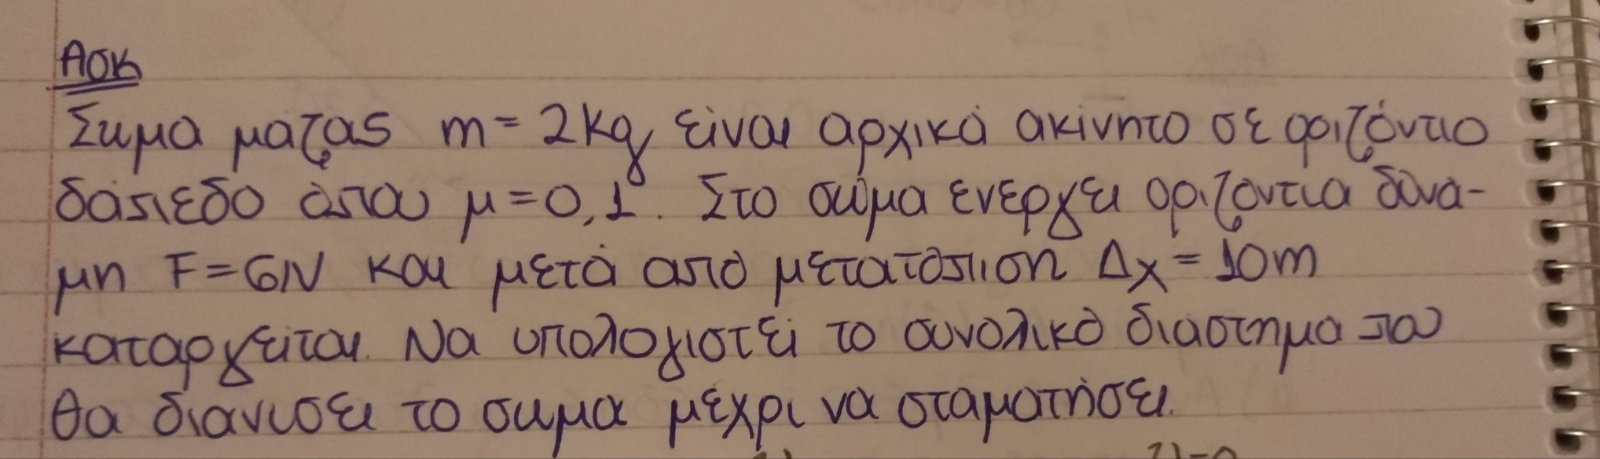 Ασκ
Σωμα μάζας m = 2Kg είναι αρχικά ακίνητο σε οριζόντιο
δάπεδο όπου μ = 0,1. Στο σώμα ενεργεί οριζόντια δύνα-
μη F = 6N και μετά από μετατόπιση Δx = 10m
καταργείται. Να υπολογιστεί το συνολικό διάστημα που
θα διανυσει το σωμα μέχρι να σταματήσει.